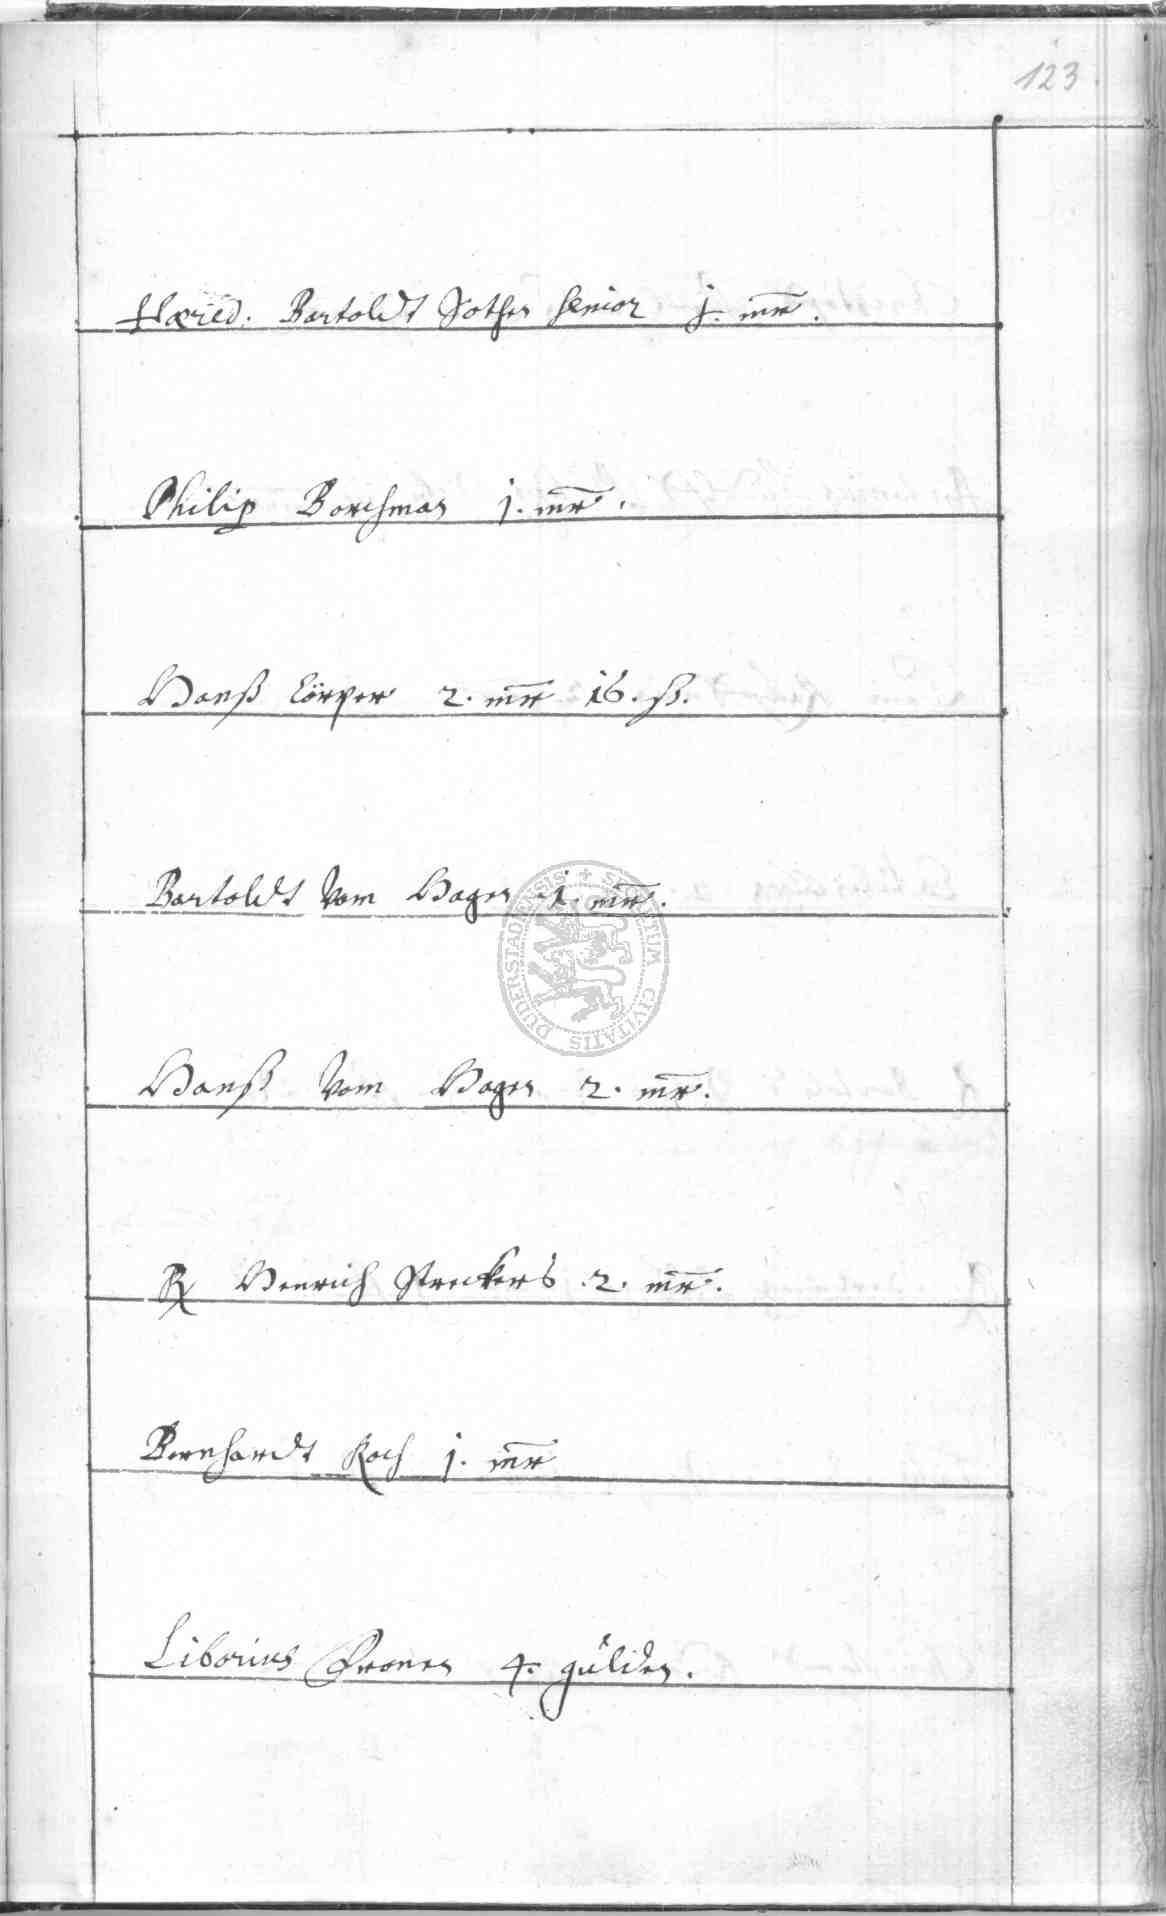 123
Hæred. Bartoldt Sothen senior j. mr.
Philip Borchman j. mr.
Hanß Cörper 2. mr 16. ß.
Bartoldt Vom Hagen 1. mr.
Hanß Vom Hagen 2. mr.
R Henrich Streckers 2. mr.
Bernhardt Koch j. mr
Liborius Cronen 4. gülden.
SECRETUM CIVITATIS DUDERSTADIENSIS